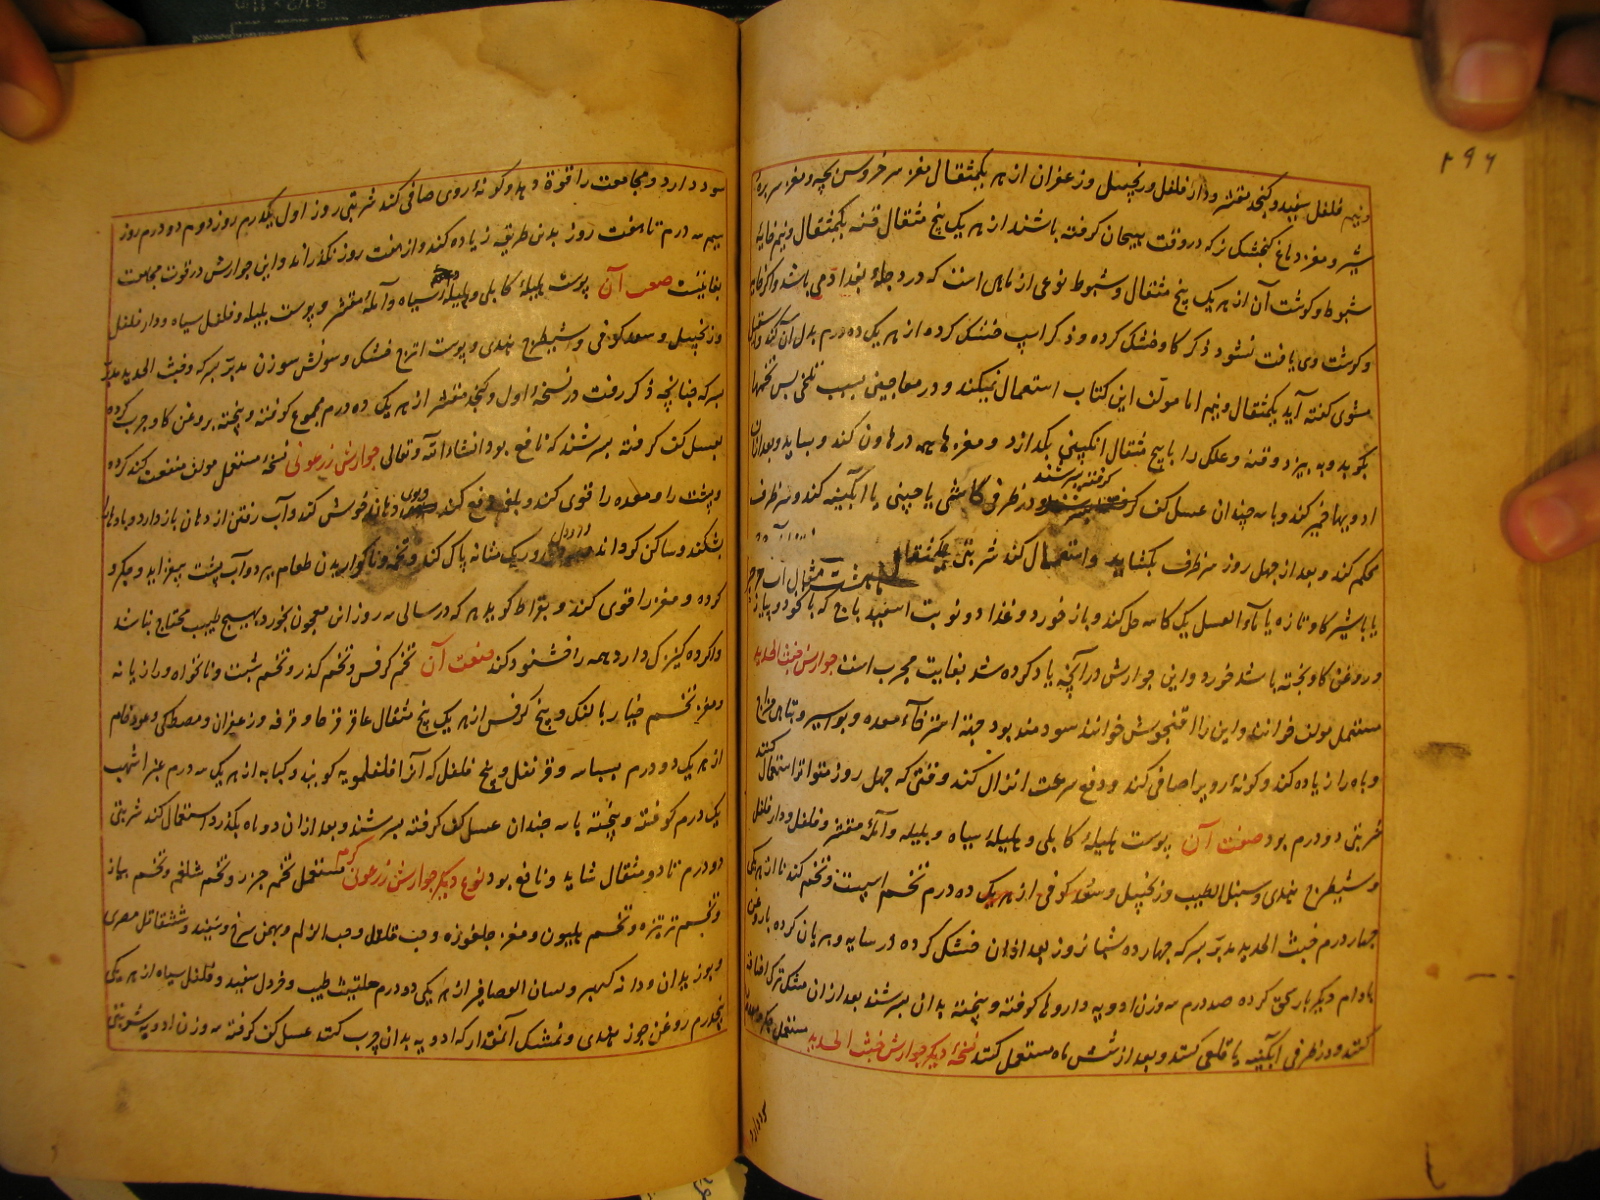 ۲۹۶
ونیم فلفل سفید و کنجد مقشر و دار فلفل و زنجبیل و زعفران از هر یکمثقال مغز سر خروس بچه و مغز سر بره
شیر و مغز دماغ کنجشک نر که در وقت هیجان گرفته باشند از هر یک پنج مثقال قنه یکمثقال و نیم خایهٔ
شبوط و گوشت آن از هر یک پنج مثقال و شبوط نوعی از ماهی است که در دجلهٔ بغداد می باشد و اگر خایه
و گوشت وی یافت نشود ذکر کاو خشک کرده و ذکر اسپ خشک کرده از هر یک ده درم بدل آن کند و اگر سقنقور
مشوی کنند آید یکمثقال و نیم اما مولف این کتاب استعمال نمیکند و در معاجینی بسبب تلخی پس تخمها
بکوبد و به بیزد و قنه و علک را با پنج مثقال انگبین بگدازد و مغزها همه در هاون کند و بساید و بعد از آن
ادویها خمیر کند و با سه چندان عسل کف گرفته بسرشند و در ظرف کاشی یا چینی یا آبگینه کند و سر ظرف
محکم کند و بعد از چهل روز سر ظرف بکشاید و استعمال کند شربتی یکمثقال هشت مثقال آب
یا با شیر کاو تازه یا ماء العسل یک کاسه حل کند و باز خورد و غذا دو نوبت اسفید باج که با کود و پیاز
و روغن کاو پخته باشد خورد و این جوارش در آنچه یاد کرده شد بغایت مجرب است جوارش خبث الحدید
مستعمل مولف خوانند و این را افنجوش خوانند سودمند بود جهة استرخاء معده و بواسیر و تباهی مزاج
و باه را زیاده کند و گونهٔ رو را صافی کند و دفع سرعت انزال کند وقتی که چهل روز متواتر استعمال کنند
شربتی دو درم بود صفت آن پوست هلیلهٔ کابلی و هلیلهٔ سیاه و بلیله و آملهٔ مقشر و فلفل و دار فلفل
و شیطرج هندی و سنبل الطیب و زنجبیل و سعد کوفی از هر یک ده درم تخم اسپست و تخم کندنا از هر یک
چهار درم خبث الحدید مدبر بسرکه چهارده شبانروز بعد از آن خشک کرده در سایه و بریان کرده بار وغن
بادام دیگر بار سحق کرده صد درم سه وزن ادویه داروها کوفته و بیخته بدان بسرشند بعد از آن مشک ترک اضافه
کنند و در ظرفی آبگینه یا قلعی کنند و بعد از شش ماه مستعمل کنند نسخهٔ دیگر جوارش خبث الحدید مستعمل
سود دارد و مجامعت را قوة دهد و گونهٔ روی صافی کند شربتی روز اول یکدرم روز دوم دو درم روز
سیم سه درم تا هفت روز بدین طریقه زیاده کند و از هفت روز نگذراند و این جوارش در قوت مجامعت
بغایتست صفت آن پوست هلیلهٔ کابلی و هلیلهٔ سیاه و آملهٔ مقشر و پوست بلیله و فلفل سیاه و دار فلفل
و زنجبیل و سعد کوفی و شیطرج هندی و پوست اترج خشک و سونش سوزن مدبر بسرکه و خبث الحدید مدبر
بسرکه چنانچه ذکر رفت در نسخهٔ اول و کنجد مقشر از هر یک ده درم مجموع کوفته و بیخته بروغن کاو چرب کرده
بعسل کف گرفته بسرشند که نافع بود انشاء الله و تعالی جوارش زرعونی نسخهٔ مستعمل مولف منفعت کند کرده
و پشت را و معده را قوی کند و بلغم دفع کند و بوی دهان خوش کند و آب رفتن از دهان باز دارد و بادها
بشکند و ساکن گرداند درد دل و ریک مثانه پاک کند و تخمه و ناگواریدن طعام ببرد و آب پشت بیفزاید و جگر و
کرده و مغز را قوی کند و بقراط گوید هر که در سالی سه روز این معجون بخورد بهیچ طبیب محتاج نباشد
صفت آن تخم کرفس و تخم گذر و تخم شبت و نانخواه و رازیانه
و مغز تخم خیار بالنک و بیخ کرفس از هر یک پنج مثقال عاقرقرحا و قرفه و زعفران و مصطکی و عود خام
از هر یک دو درم بسباسه و قرنفل و بیخ فلفل که آنرا فلفلمویه گویند و کبابه از هر یک سه درم عنبر اشهب
یک درم کوفته و بیخته با سه چندان عسل کف گرفته بسرشند و بعد از آن دو ماه بگذرد استعمال کند شربتی
دو درم تا دو مثقال شاید و نافع بود نوع دیگر جوارش زرعون گرم مستعمل تخم جزر و تخم شلغم و تخم پیاز
و تخم ترتیزه و تخم هلیون و مغز جلغوزه و حب قلقل و حب الزلم و بهمن سرخ و سفید و شقاقل مصری
و بوزیدان و دانه کبیر و لسان العصافیر از هر یکی دو درم حلتیت طیب و خردل سفید و فلفل سیاه از هر یکی
پنجدرم روغن جوز هندی و نمشک آنمقدار که ادویه بدان چرب کند عسل کف گرفته سه وزن ادویه شربتی